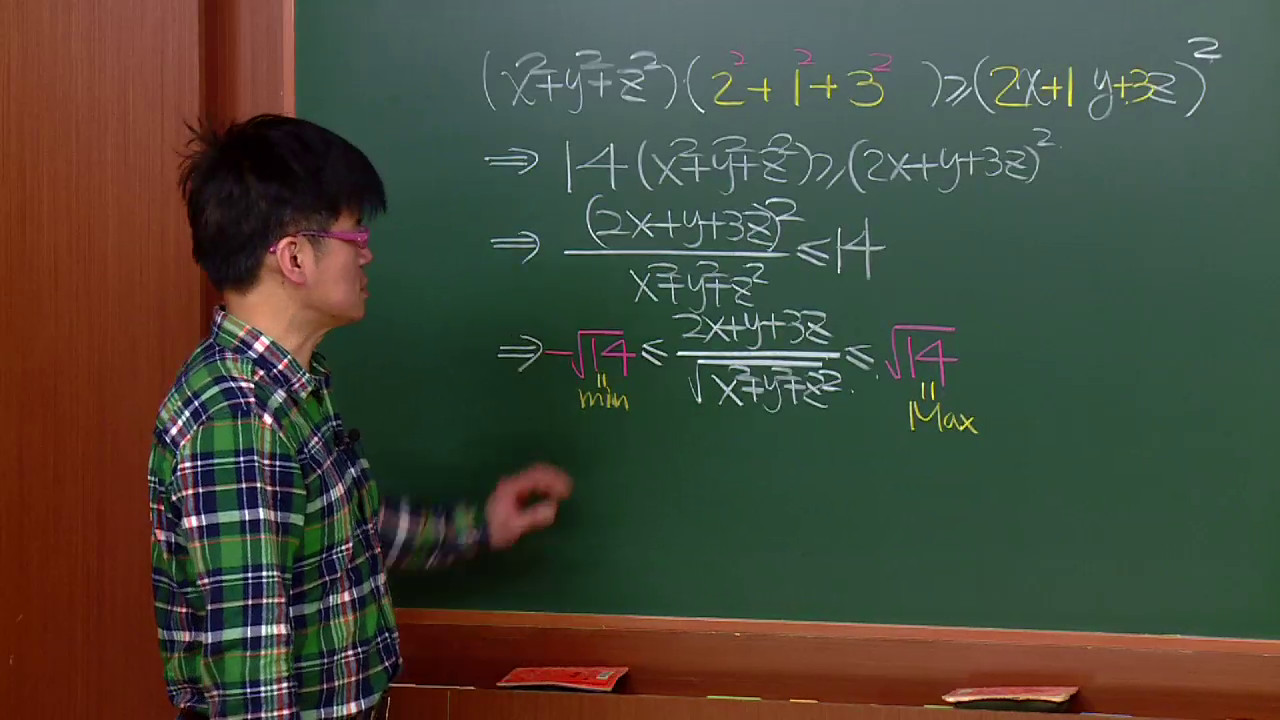 (x²+y²+z²)·(2²+1²+3² )≥(2x+1 y+3z)²
⇒ 14(x²+y²+z²)≥(2x+y+3z)²
⇒ (2x+y+3z)² / x²+y²+z² ≤14
⇒ -√14 ≤ 2x+y+3z / √x²+y²+z² ≤ √14
= min = Max